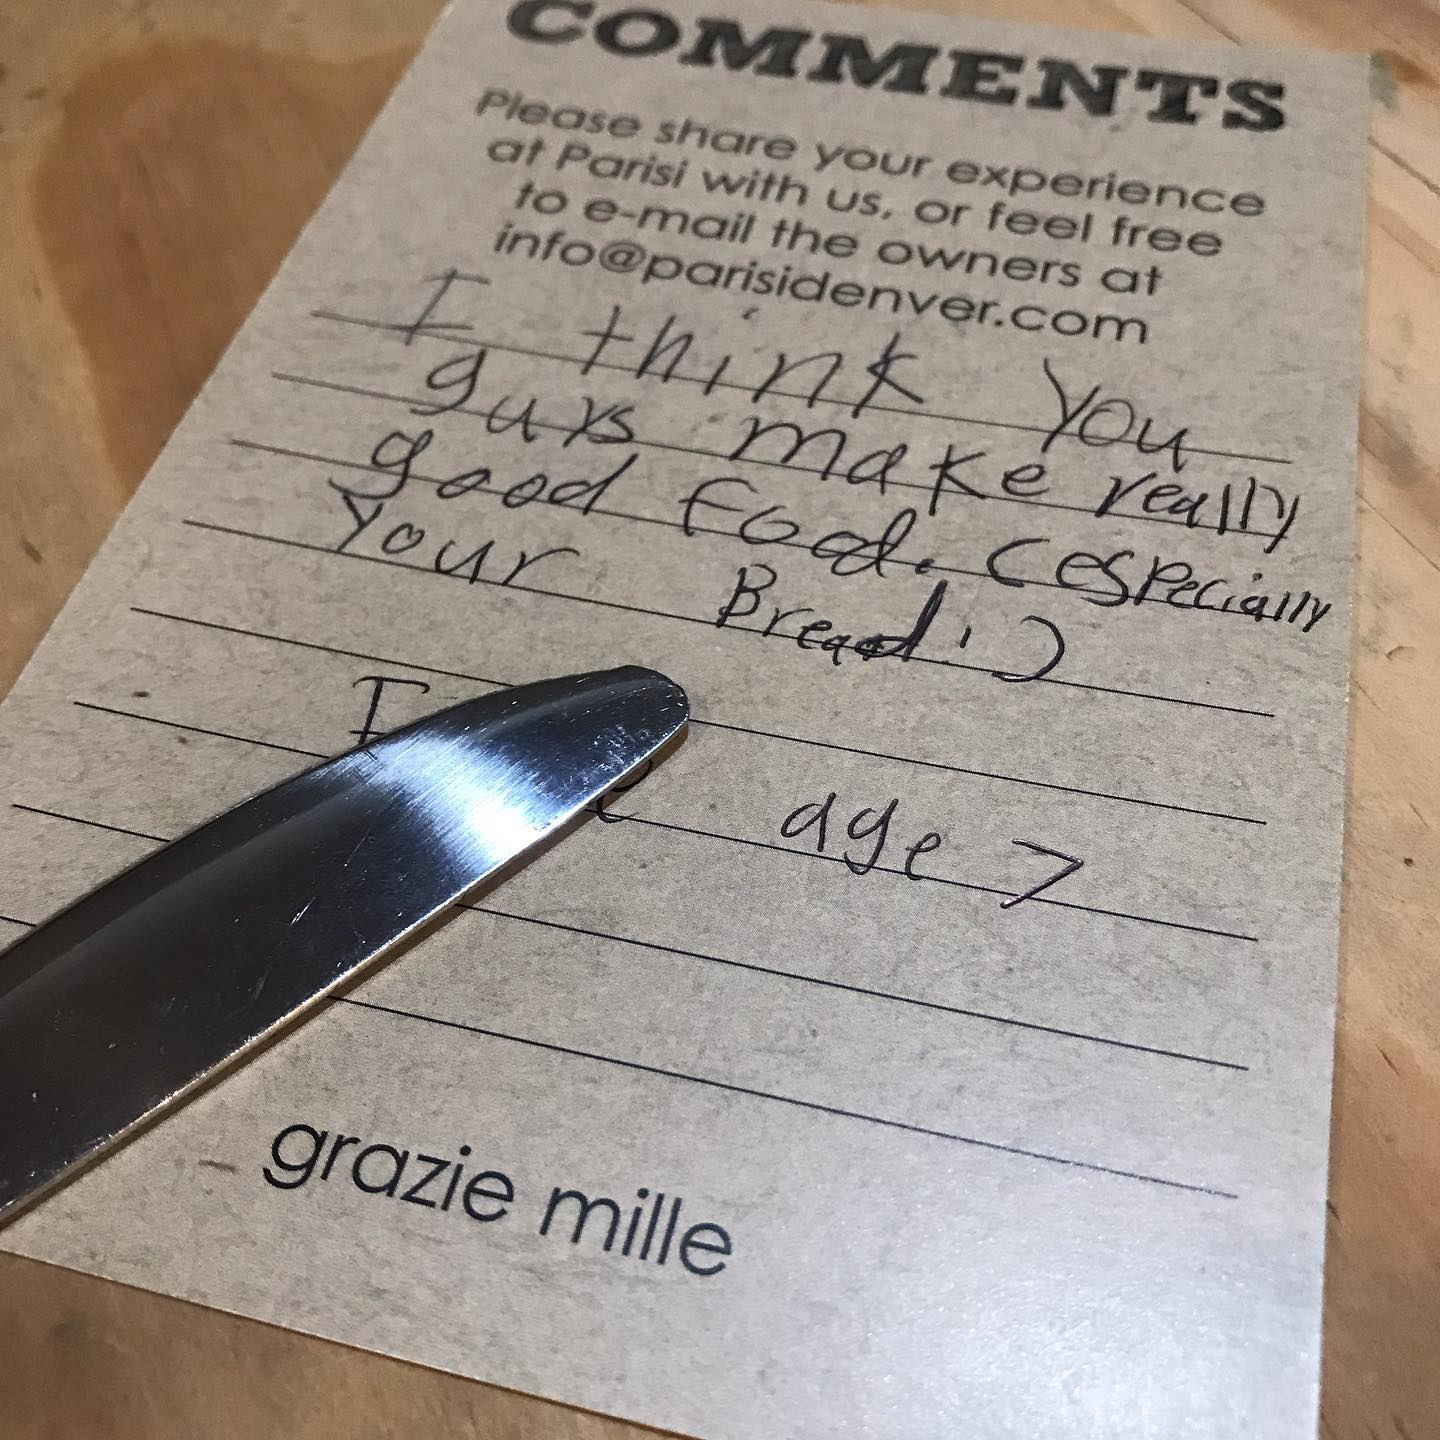 COMMENTS
Please share your experience
at Parisi with us, or feel free
to e-mail the owners at
info@parisidenver.com
I think you
guys make really
good food. (especially
your Bread!)
I
age 7
grazie mille